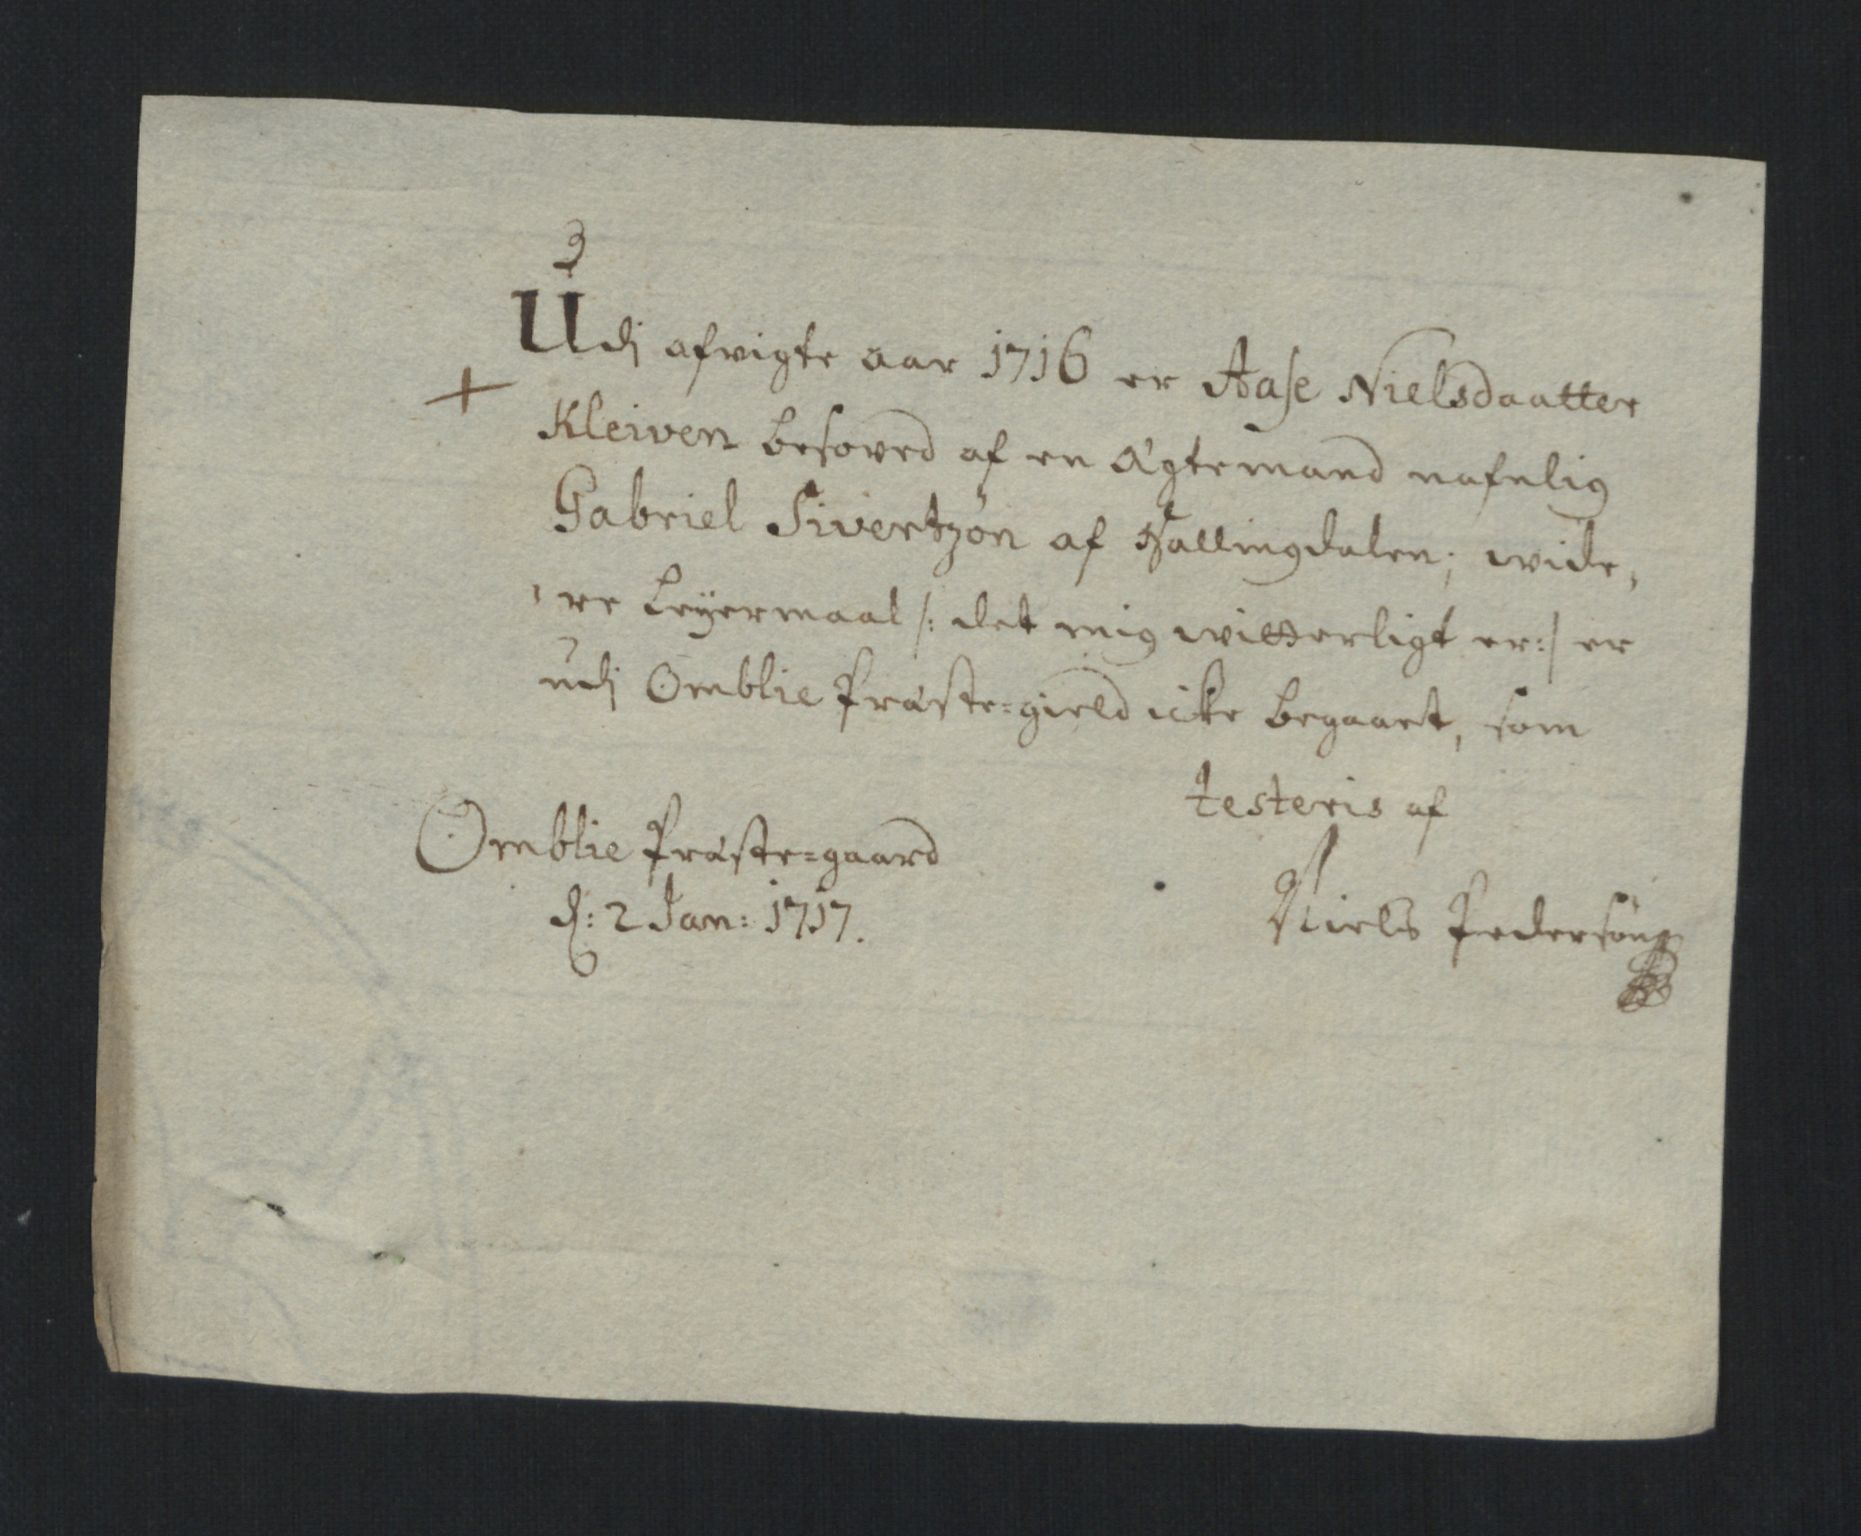 Udj afvigte aar 1716 er Aase Nielsdaatter
+ Kleiven besoved af en Ægtemand nafnlig
Gabriel Sivertzøn af Hallingdalen; wide,
,re Leyermaal /: det mig witterligt er:/ er
udj Omblie Præste=gield icke begaaet, som
testeris af
Omblie Præste=gaard
d: 2 Jan: 1717.
Niels Pedersøn